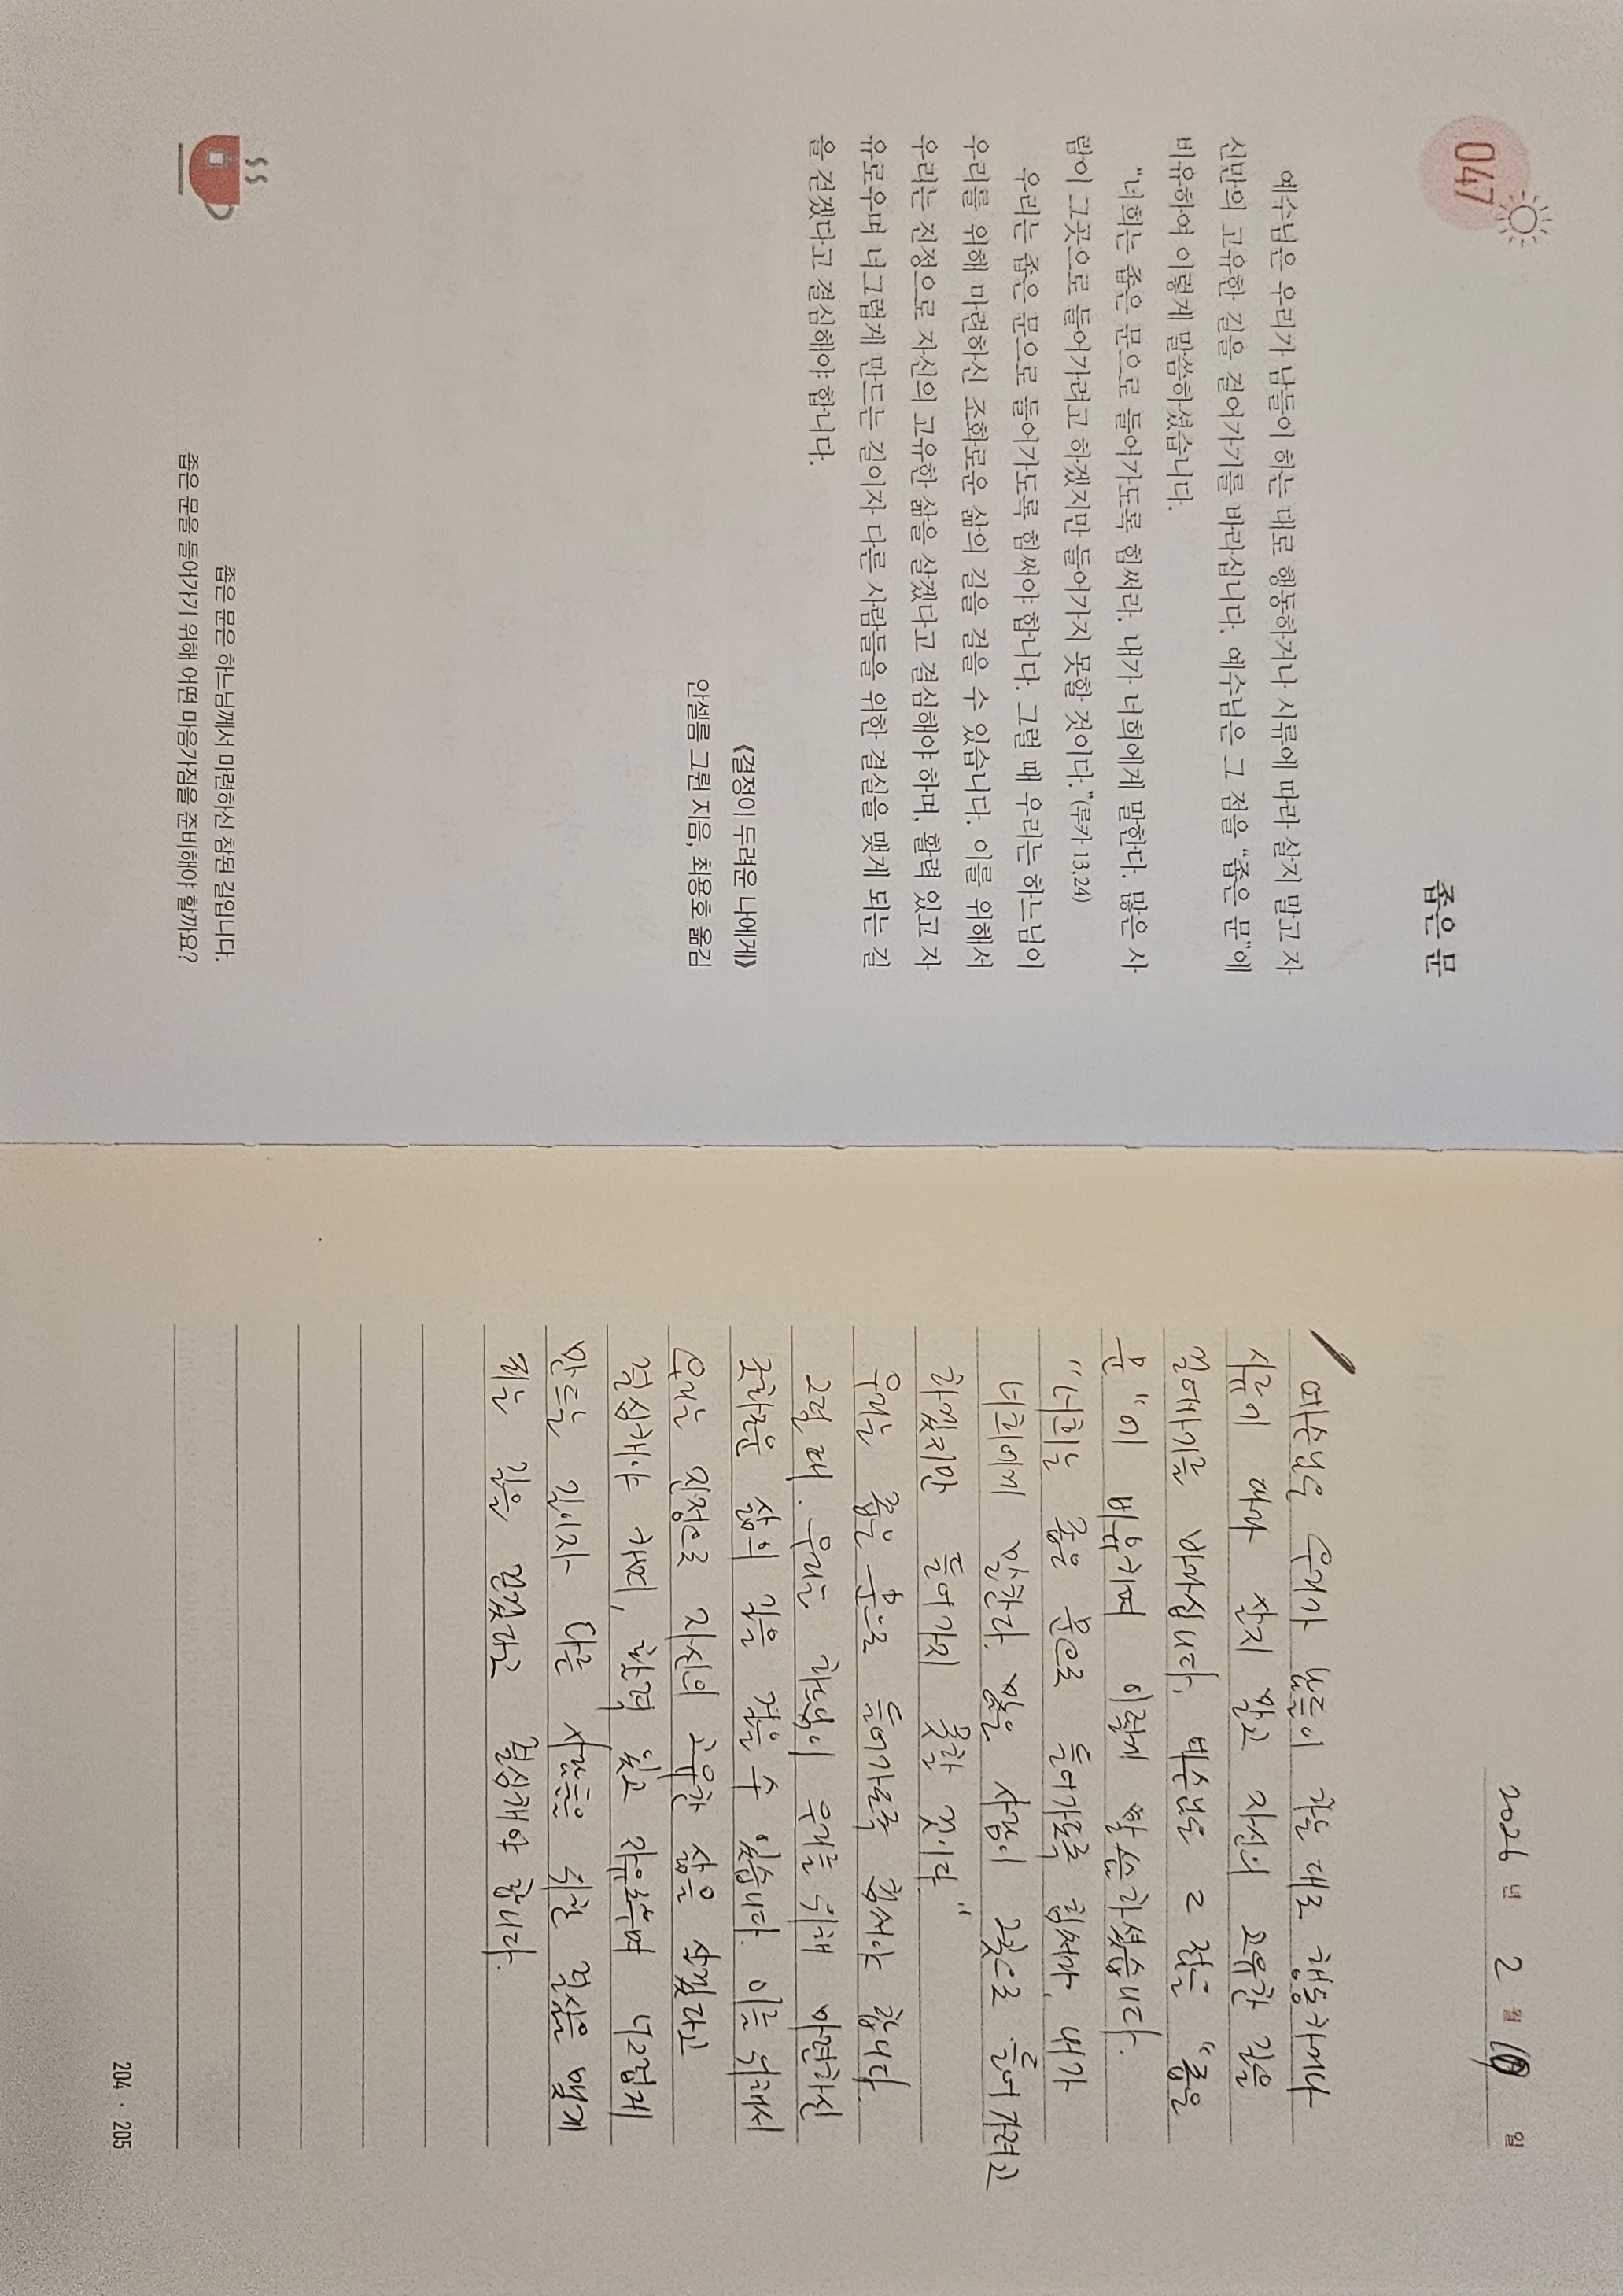 047
좁은 문
예수님은 우리가 남들이 하는 대로 행동하거나 시류에 따라 살지 말고 자
신만의 고유한 길을 걸어가기를 바라십니다. 예수님은 그 점을 “좁은 문”에
비유하여 이렇게 말씀하셨습니다.
“너희는 좁은 문으로 들어가도록 힘써라. 내가 너희에게 말한다. 많은 사
람이 그곳으로 들어가려고 하겠지만 들어가지 못할 것이다.”(루카 13,24)
우리는 좁은 문으로 들어가도록 힘써야 합니다. 그럴 때 우리는 하느님이
우리를 위해 마련하신 조화로운 삶의 길을 걸을 수 있습니다. 이를 위해서
우리는 진정으로 자신의 고유한 삶을 살겠다고 결심해야 하며, 활력 있고 자
유로우며 너그럽게 만드는 길이자 다른 사람들을 위한 결실을 맺게 되는 길
을 걷겠다고 결심해야 합니다.
《결정이 두려운 나에게》
안셀름 그륀 지음, 최용호 옮김
좁은 문은 하느님께서 마련하신 참된 길입니다.
좁은 문을 들어가기 위해 어떤 마음가짐을 준비해야 할까요?
2026 년 2 월 일
예수님은 우리가 남들이 하는 대로 행동하거나
시류에 따라 살지 말고 자신의 고유한 길을
걸어가기를 바라십니다. 예수님은 그 점을 “좁은
문”에 비유하며 이렇게 말씀하셨습니다.
“너희는 좁은 문으로 들어가도록 힘써라. 내가
너희에게 말한다. 많은 사람이 그곳으로 들어가려고
하겠지만 들어가지 못할 것이다.”
우리는 좁은 문으로 들어가도록 힘써야 합니다.
그럴 때. 우리는 하느님이 우리를 위해 마련하신
조화로운 삶의 길을 걸을 수 있습니다. 이를 위해서
우리는 진정으로 자신의 고유한 삶을 살겠다고
결심해야 하며, 활력 있고 자유로우며 너그럽게
만드는 길이자 다른 사람들을 위한 결실을 맺게
되는 길을 걷겠다고 결심해야 합니다.
204 · 205